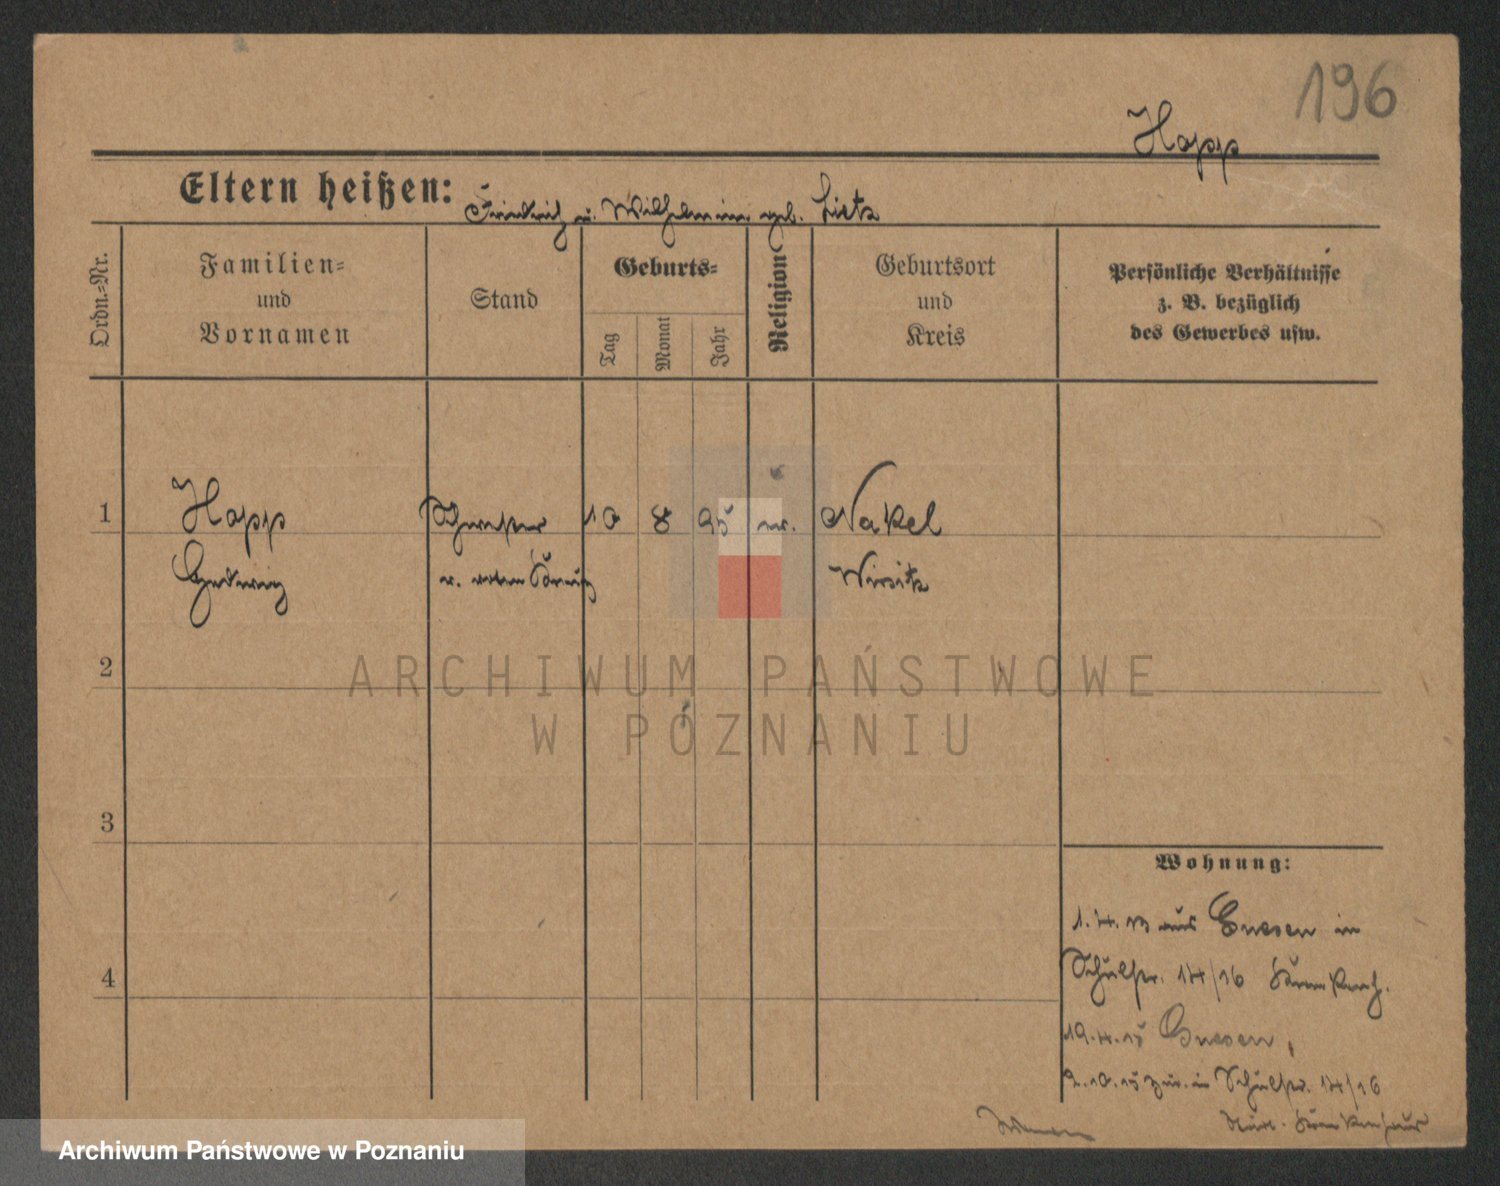 196
Hopp
Eltern heißen: Friedrich u. Wilhelmine geb. Lietz
Ordn.-Nr.
Familien-
und
Vornamen
Stand
Geburts-
Tag
Monat
Jahr
Religion
Geburtsort
und
Kreis
Persönliche Verhältnisse
z. B. bezüglich
des Gewerbes usw.
1 Hopp Schwester 10 8 95 ev. Nakel
Hedwig v. roten Kreuz Wirsitz
2
3
4
Wohnung:
1.4.13 aus Gnesen in
Schulstr. 14/16 Krankenh.
19.4.15 Gnesen,
2.10.15 zur. in Schulstr. 14/16
Krankenhaus
ARCHIWUM PAŃSTWOWE
W POZNANIU
Archiwum Państwowe w Poznaniu